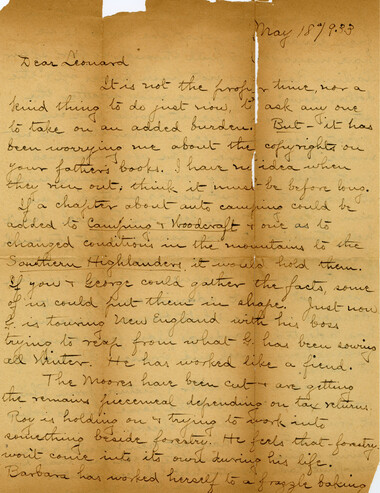 May 18th/933
Dear Leonard
It is not the proper time, nor a
kind thing to do just now, to ask any one
to take on an added burden. But - it has
been worrying me about the copyrights on
your father's books. I have no idea when
they run out, think it must be before long.
If a chapter about auto camping could be
added to Camping & Woodcraft & one as to
changed conditions in the mountains to the
Southern Highlanders, it would hold them.
If you & George could gather the facts, some
of us could put them in shape. Just now
G. is touring New England with his boss
trying to reap from what G. has been sowing
all Winter. He has worked like a fiend.
The Moores have been cut & are getting
the remains piecemeal depending on tax returns.
Roy is holding on & trying to work into
something beside forestry. He feels that forestry
won't come into its own during his life.
Barbara has worked herself to a frazzle baking